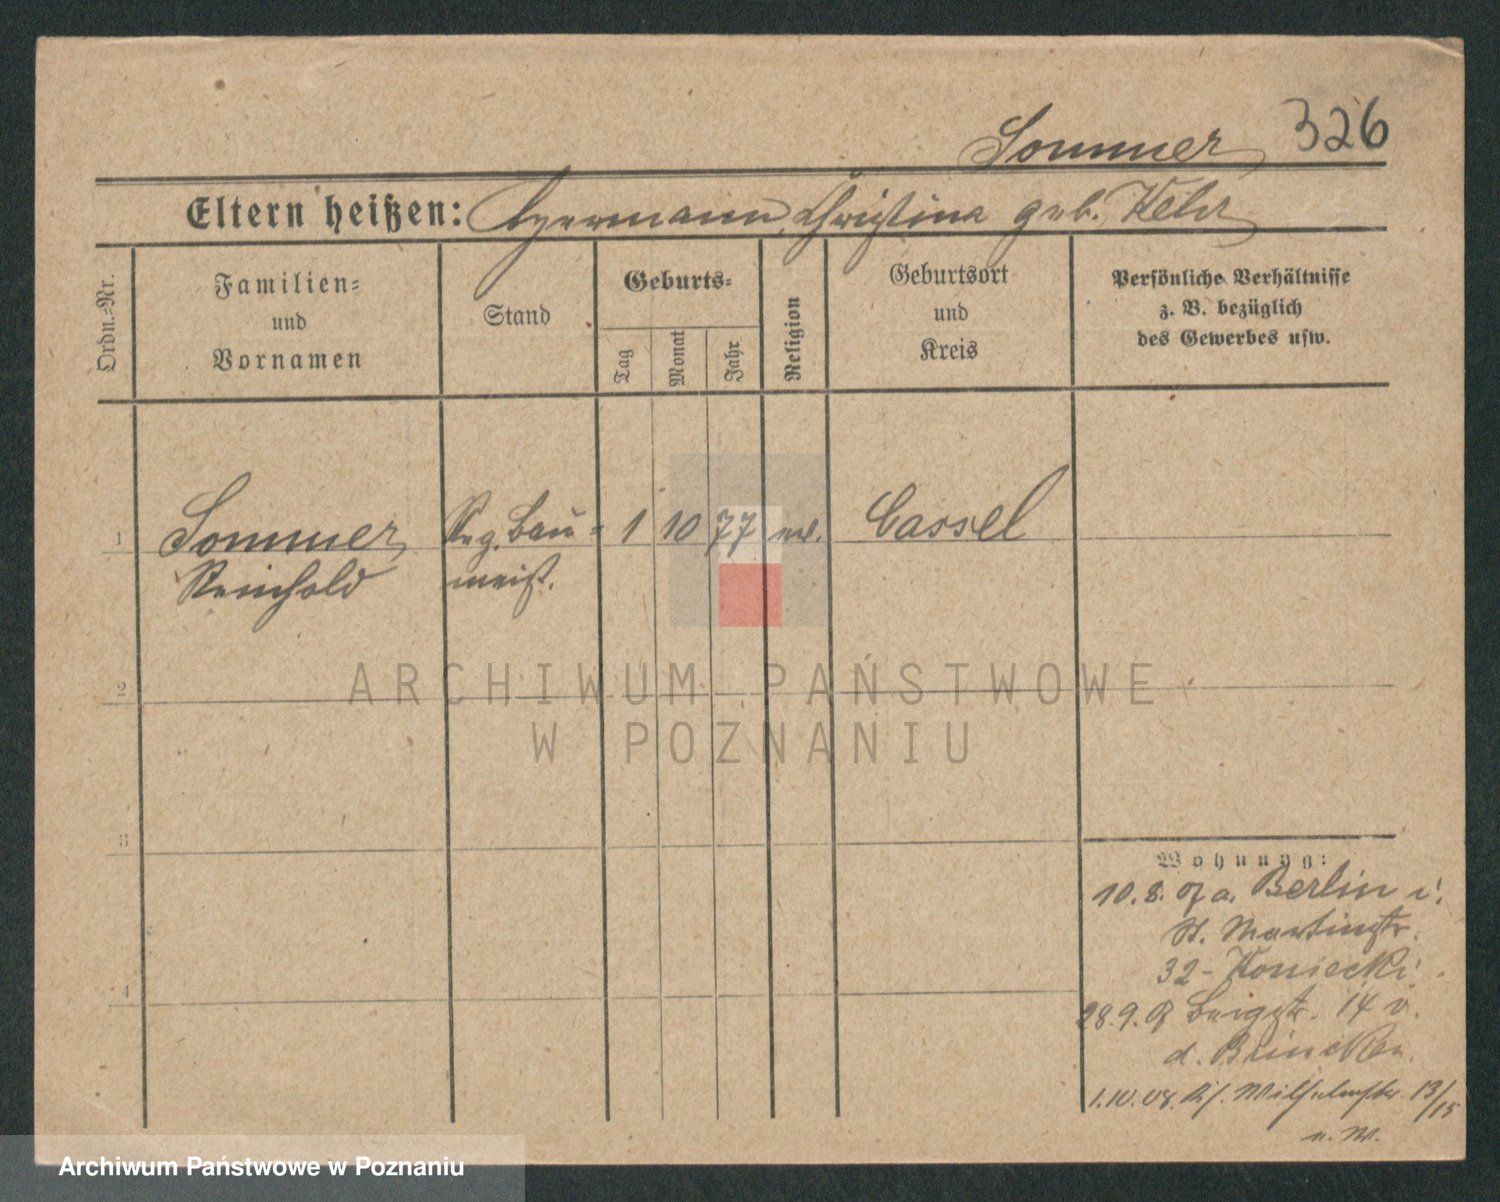 Sommer 326
Eltern heißen: Hermann, Christina geb. Kehr
Ordn.=Nr.
Familien=
und
Vornamen
Stand
Geburts=
Tag
Monat
Jahr
Religion
Geburtsort
und
Kreis
Persönliche Verhältnisse
z. B. bezüglich
des Gewerbes usw.
1 Sommer Reg. Bau= 1 10 77 ev. Cassel
Reinhold meist.
2
3
4
Wohnung:
10.8. a. Berlin
St. Martinstr.
32 - Koniecki
28.9. 14 v.
d. Brincken.
1.10.08. Wilhelmstr. 13/15
ARCHIWUM PAŃSTWOWE
W POZNANIU
Archiwum Państwowe w Poznaniu